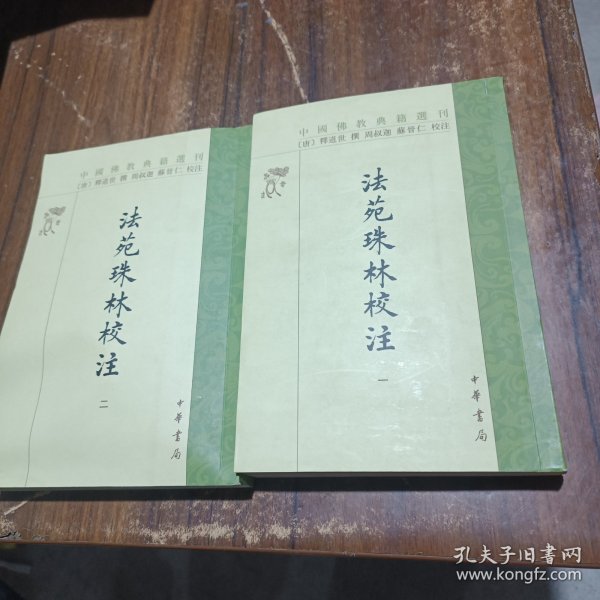 中國佛教典籍選刊
〔唐〕釋道世 撰 周叔迦 蘇晉仁 校注
法苑珠林校注
二
中華書局
中國佛教典籍選刊
〔唐〕釋道世 撰 周叔迦 蘇晉仁 校注
法苑珠林校注
一
中華書局
孔夫子旧书网
www.kongfz.com